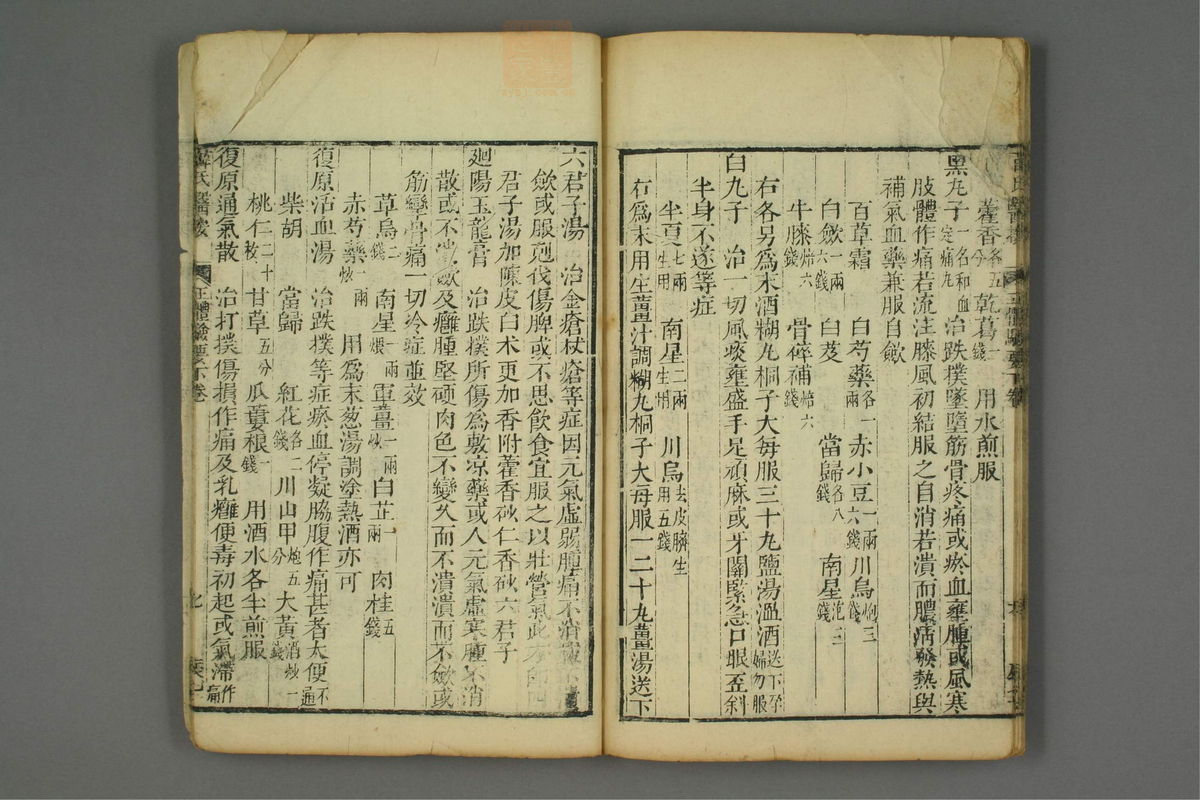 藿香各五分 乾葛一錢 用水煎服
黑丸子一名和血定痛丸 治跌撲墜墮筋骨疼痛或瘀血壅腫或風寒
肢體作痛若流注膝風初結服之自消若潰而膿清發熱與
補氣血藥兼服自斂
百草霜 白芍藥各一兩 赤小豆一兩六錢 川烏炮三錢
白斂一兩六錢 白芨 當歸各八錢 南星泡三錢
牛膝焙六錢 骨碎補焙六錢
右各另爲末酒糊丸桐子大每服三十丸鹽湯溫酒送下孕婦勿服
白丸子 治一切風痰壅盛手足頑麻或牙關緊急口眼歪斜
半身不遂等症
半夏七兩生用 南星二兩生用 川烏去皮臍生用五錢
右爲末用生薑汁調糊丸桐子大每服一二十丸薑湯送下
六君子湯 治金瘡杖瘡等症因元氣虛弱腫痛不消
斂或服剋伐傷脾或不思飲食宜服之以壯營氣此方
君子湯加陳皮白朮更加香附藿香砂仁香砂六君子
廻陽玉龍膏 治跌撲所傷爲敷凉藥或人元氣虛寒腫不消
散或不潰斂及癰腫堅硬肉色不變久而不潰潰而不斂或
筋攣骨痛一切冷症並效
草烏二錢 南星一兩煨 軍薑一兩炒 白芷一兩 肉桂五錢
赤芍藥一兩炒 用爲末葱湯調塗熱酒亦可
復原活血湯 治跌撲等症瘀血停凝脇腹作痛甚者大便不通
柴胡 當歸 紅花各二錢 川山甲炮五分 大黃酒炒一錢
桃仁二十枚 甘草五分 瓜蔞根一錢 用酒水各半煎服
復原通氣散 治打撲傷損作痛及乳癰便毒初起或氣滯作痛
薛氏醫案 正體類要下卷